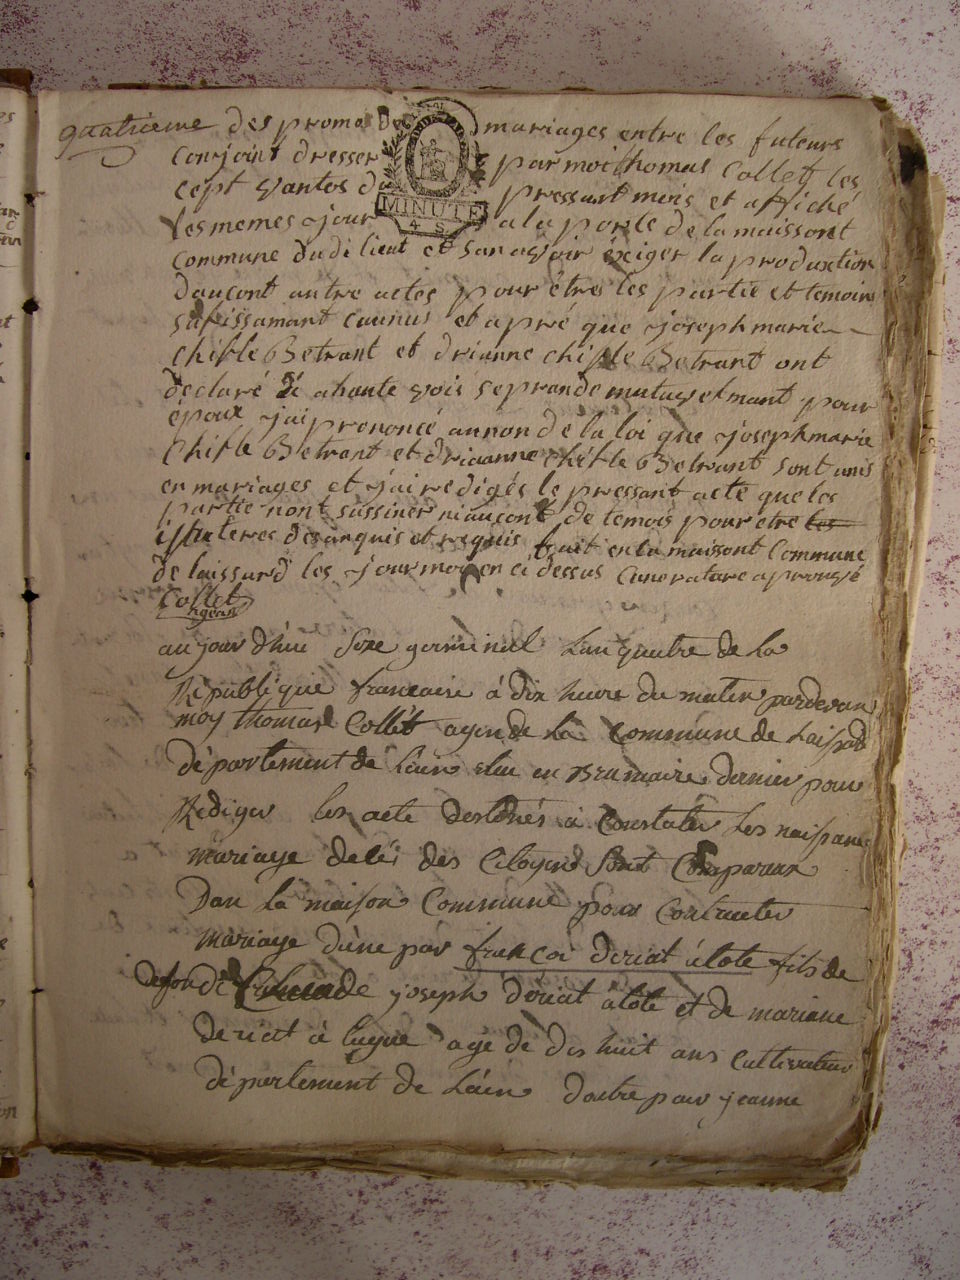 quatrieme des prome De mariages entre les futeurs
conjoint dresser par moi thomas Collet les
cept vantos du pressant mois et affiché
MINUTE
4 S
les memes jour a la porte de la maissont
commune dudi lieut et san avoir éxiger la produxtion
daucont autre actes pour être les partie et temoins
sufissamant connus et apré que joseph marie
chifle Betrant et drianne chifle Betrant ont
declaré a hante vois se prande mutuyelmant pour
époux jai prenoncé au non de la loi que joseph marie
Chifle Betrant et driaanne chifle Betrant sont unis
en mariages et jai redigés le pressant acte que les
partie nont sussiner ni aucont de temois pour etre les
de anquis et requis fait en la maissont Commune
de laissard les jour moy en ci dessus aprouvé
Collet
agent
aujourdhui Soze germinal Lan quatre de La
Republique francaire à dix heure du matin pardevan
moy thomas Collét agen de La Commune de Laissard
département de Lain elu en Brumaire dernier pour
Rediger les acte destinés a Constater Les naissance
mariage delés des Citoyens Sont Comparux
Dan La maison Commune pour Contracter
mariage dune par francoi deriat à lote fils de
defon de joseph deriat à lote et de mariane
deriat à lugne agé de dis huit ans cultivateur
département de Láin doutre par jeanne